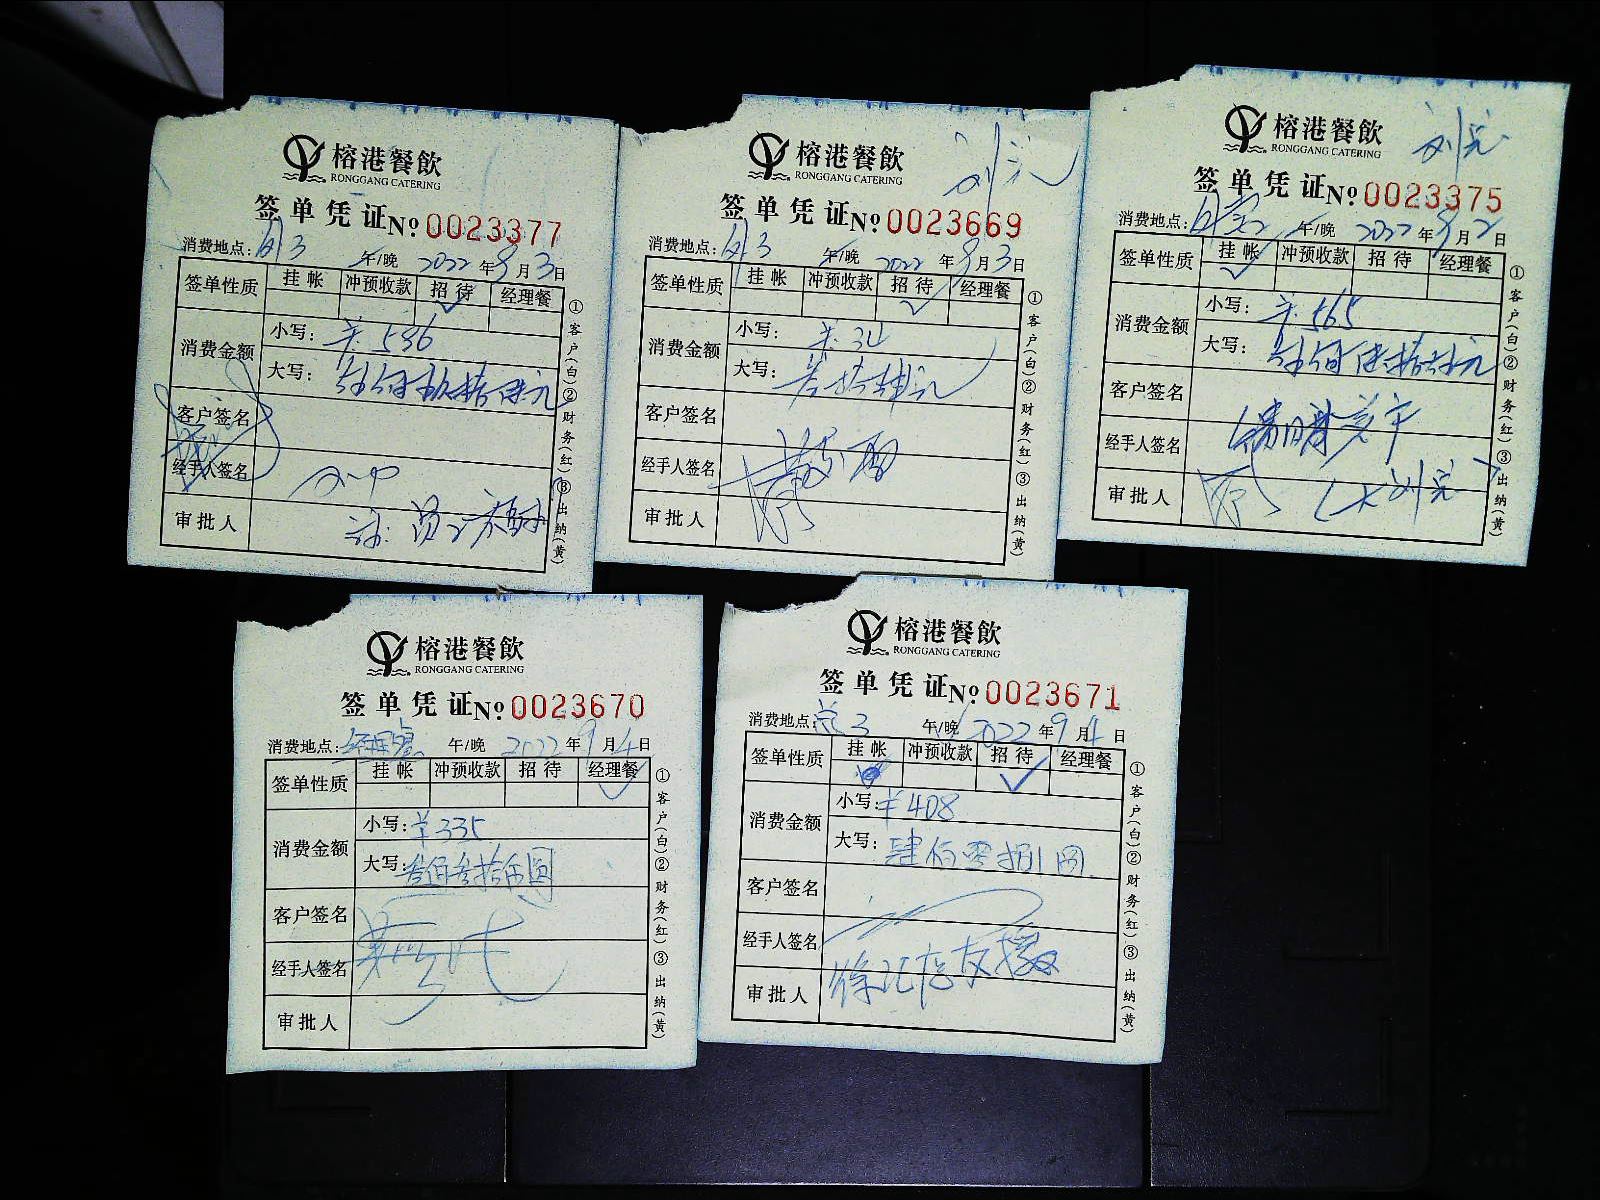 榕港餐飲
RONGGANG CATERING
签单凭证 No 0023377
消费地点: 3 午/晚 2022年9月3日
签单性质 挂帐 冲预收款 招待 经理餐
消费金额 小写: ¥
大写:
客户签名
经手人签名
审批人
①客户(白)②财务(红)③出纳(黄)
榕港餐飲
RONGGANG CATERING
签单凭证 No 0023669
消费地点: 3 午/晚 2022年9月3日
签单性质 挂帐 冲预收款 招待 经理餐
消费金额 小写: ¥
大写:
客户签名
经手人签名
审批人
①客户(白)②财务(红)③出纳(黄)
榕港餐飲
RONGGANG CATERING
签单凭证 No 0023375
消费地点: 午/晚 2022年9月2日
签单性质 挂帐 冲预收款 招待 经理餐
消费金额 小写: ¥565
大写: 伍佰陆拾伍元
客户签名
经手人签名
审批人
①客户(白)②财务(红)③出纳(黄)
榕港餐飲
RONGGANG CATERING
签单凭证 No 0023670
消费地点: 午/晚 2022年9月4日
签单性质 挂帐 冲预收款 招待 经理餐
消费金额 小写: ¥335
大写: 叁佰叁拾伍圆
客户签名
经手人签名
审批人
①客户(白)②财务(红)③出纳(黄)
榕港餐飲
RONGGANG CATERING
签单凭证 No 0023671
消费地点: 3 午/晚 2022年9月4日
签单性质 挂帐 冲预收款 招待 经理餐
消费金额 小写: ¥408
大写: 肆佰零捌圆
客户签名
经手人签名
审批人
①客户(白)②财务(红)③出纳(黄)